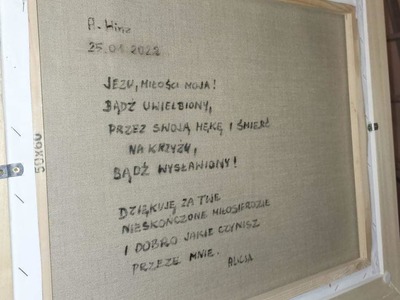 A. Hinz
25.01.2022
JEZU, MIŁOŚCI MOJA!
BĄDŹ UWIELBIONY,
PRZEZ SWOJĄ MĘKĘ I ŚMIERĆ
NA KRZYŻU,
BĄDŹ WYSŁAWIONY!
DZIĘKUJĘ ZA TWE
NIESKOŃCZONE MIŁOSIERDZIE
I DOBRO JAKIE CZYNISZ
PRZEZE MNIE.
ALICJA
50x60